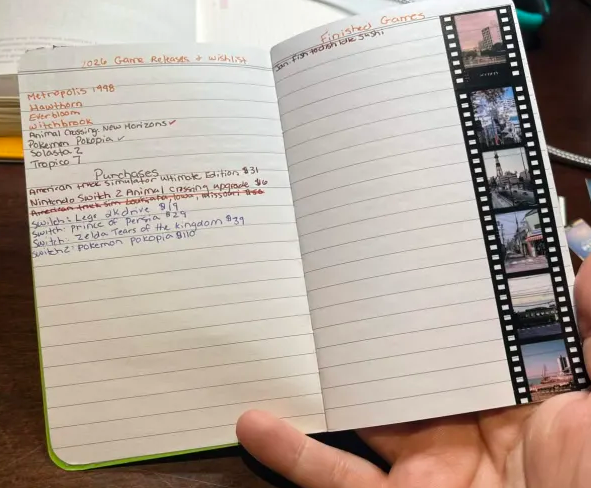 2026 Game Releases + Wishlist
Metropolis 1998
Hawthorn
Everbloom
Witchbrook
Animal Crossing: New Horizons ✓
Pokemon Pokopia ✓
Solasta 2
Tropico 7
Purchases
American Truck Simulator Ultimate Edition: $31
Nintendo Switch 2 Animal Crossing upgrade $6
American truck sim Iowa, Missouri
Switch: Lego 2K drive $19
Switch: Prince of Persia $29
Switch: Zelda Tears of the Kingdom $39
Switch2: Pokemon Pokopia $110
Finished Games
Jan: fish to dish idle sushi